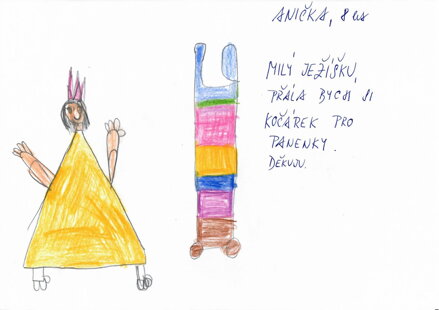 ANIČKA, 8 let
MILÝ JEŽÍŠKU,
PŘÁLA BYCH SI
KOČÁREK PRO
PANENKY.
DĚKUJU.